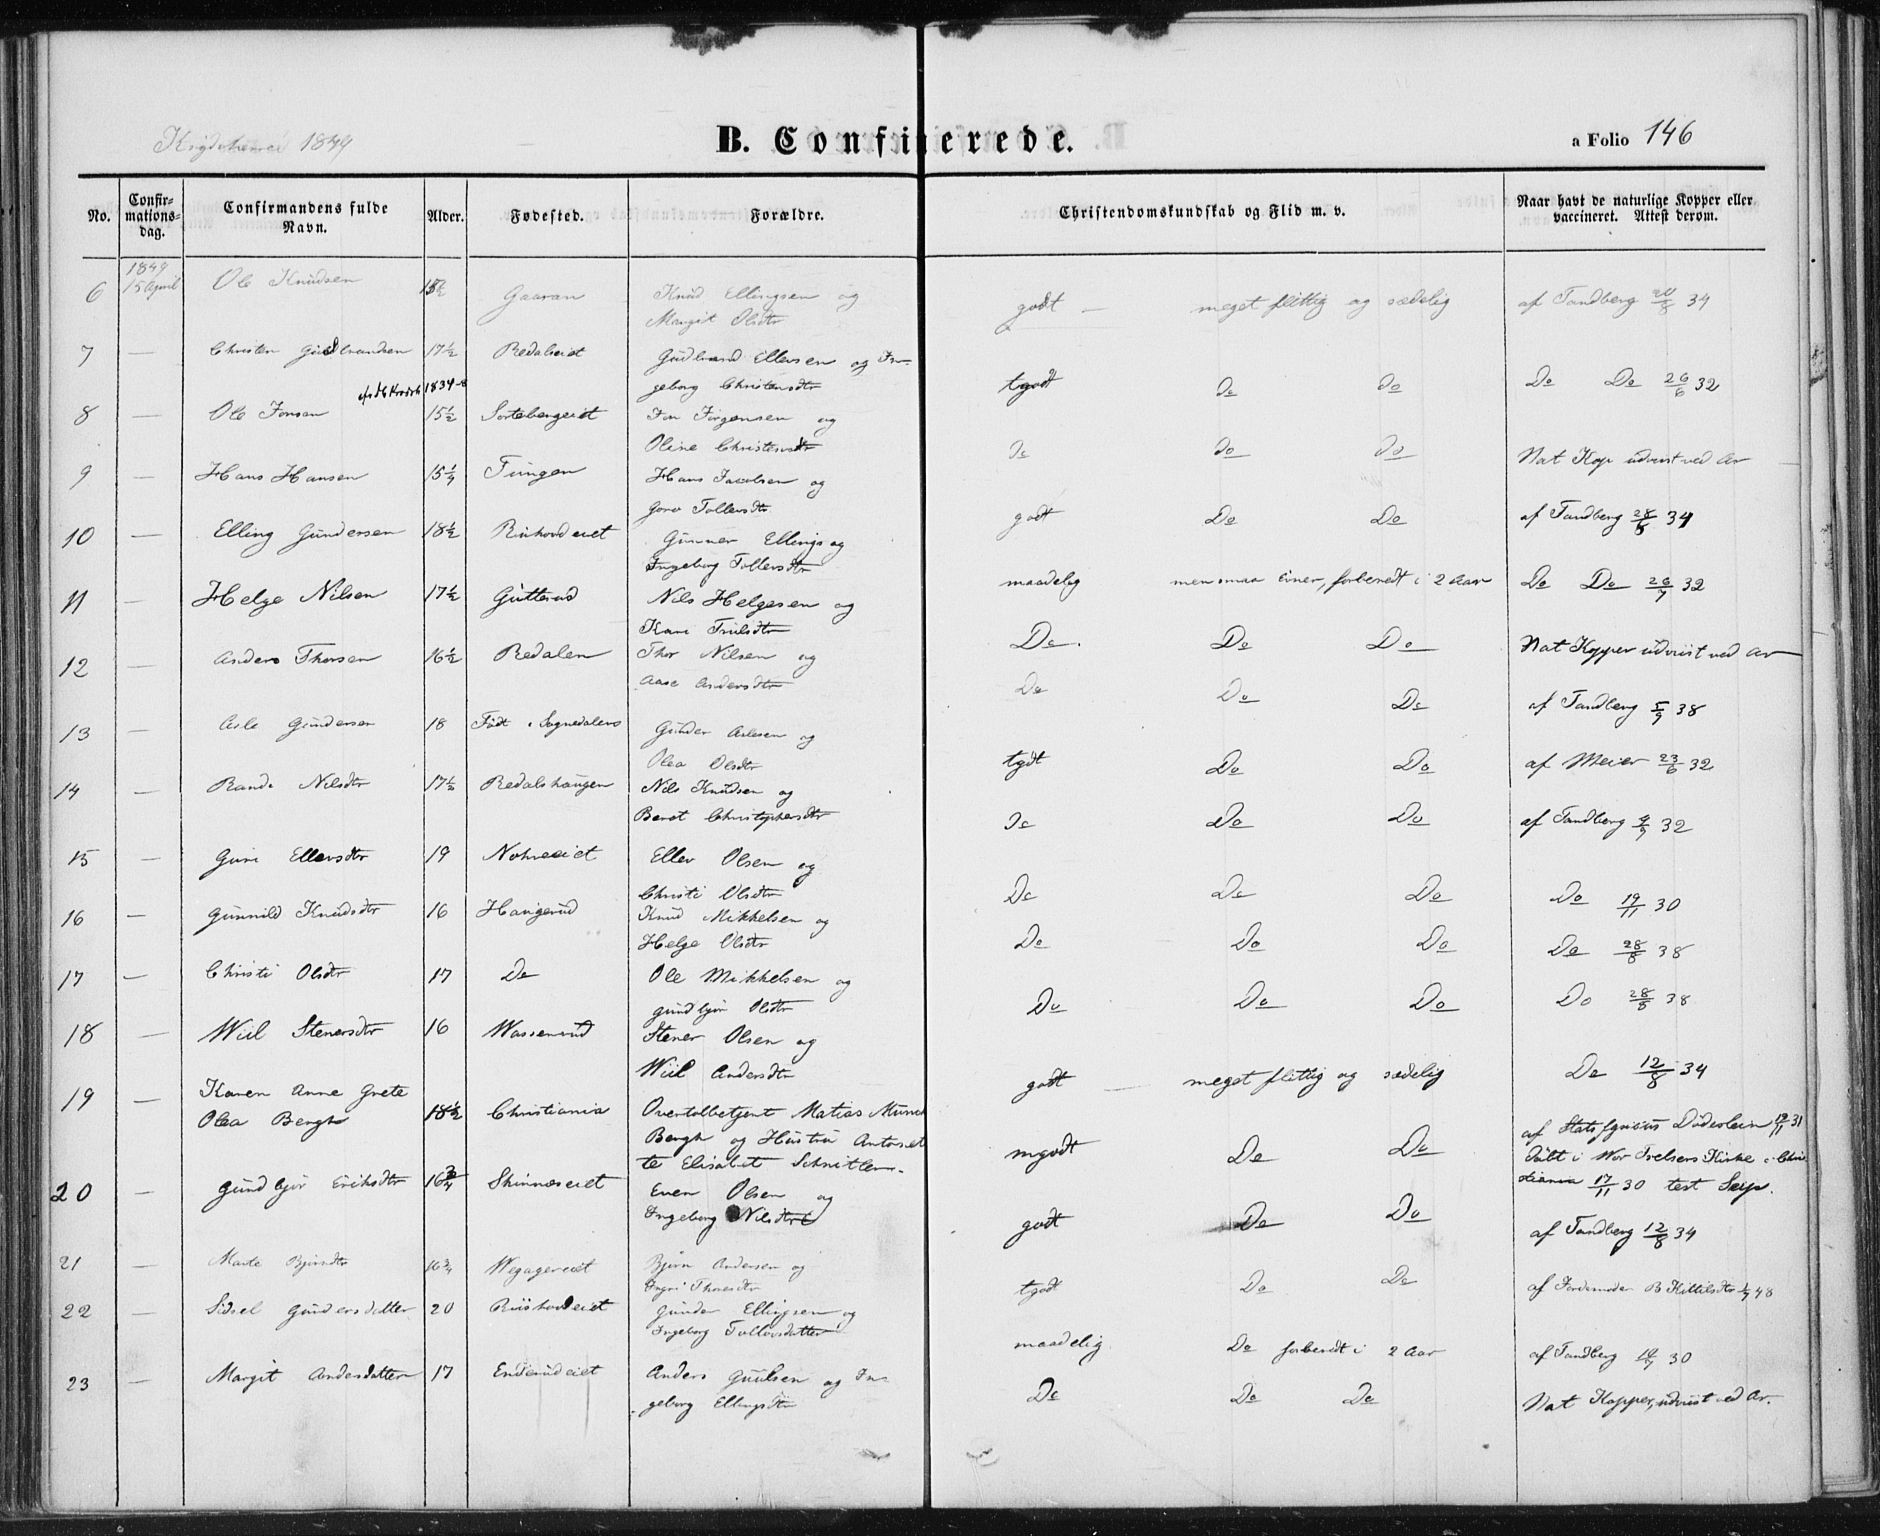 1849
B. Confirmerede.
a Folio 146
No. Confirmations-dag. Confirmandens fulde Navn. Alder. Fødested. Forældre. Christendomskundskab og Flid m. v. Naar havt de naturlige Kopper eller vaccineret. Attest derom.
1849
6 15 April Ole Knudsen 15½ Gaaran Knud Ellingsen og godt — meget flittig og sædelig af Tandberg 34
Margit Olsdtr
7 — Christen Gudbrandsen 17½ Redalseiet Gudbrand Ellevsen og In-
geborg Christensdtr tgodt Do Do Do Do 26/6 32
1834
8 — Ole Jonsen 15½ Sortebergeiet Jon Jørgensen og
Oline Christensdtr Do Do Do Nat Kop udviist ved Ar
9 — Hans Hansen 15¼ Tungen Hans Jacobsen og
Goro Tollevsdtr godt Do Do af Tandberg 28/8 34
10 — Elling Gundersen 18½ eiet Gunner Ellings og
Ingeborg Tollevsdtr maadelig men smaa Evner, forberedt i 2 Aar Do Do 26/9 32
11 — Helge Nilsen 17½ Gutterud Nils Helgesen og
Kari Trulsdtr Do. Do Do Nat Kopper udviist ved Ar
12 — Anders Thorsen 16½ Redalen Thor Nilsen og
Aase Andersdtr Do Do Do af Tandberg 5/9 38
13 — Asle Gundersen 18 Født i Sognedalens Gunder Aslesen og
Olea Olsdtr tgdt Do Do af Meier 23/6 32
14 — Randi Nilsdtr 17½ Redalshaugen Nils Knudsen og
Beret Christophersdtr Do Do Do af Tandberg 9/9 32
15 — Guri Ellevsdtr 19 Nohreeiet Ellev Olsen og
Christi Olsdtr Do Do Do Do 19/11 30
16 — Gunnild Knudsdtr 16 Haugerud Knud Mikkelsen og
Helge Olsdtr Do Do Do Do 28/8 38
17 — Christi Olsdtr 17 Do Ole Mikkelsen og
Gundbjør Olsdtr Do Do Do Do 28/8 38
18 — Wiil Stenersdtr 16 Wassenrud Stener Olsen og
Wiil Andersdtr godt — meget flittig og sædelig Do 12/8 34
19 — Karen Anne Grete
Olea Bergh 18½ Christiania Overtolbetjent Matias Munch
Bergh og Hustru Antoinet
te Elisabet mgodt Do Do af 31
døbt i Vor Frelsers Kirke i Chri
stiania 17/11 30 test
20 — Gundbjør Eriksdtr 16¾ Skinnæseiet Even Olsen og
Ingeborg Nilsdtr godt Do Do af Tandberg 12/8 34
21 — Marte Bjørnsdtr 16¾ Wegagereiet Bjørn Andersen og
Ingri Thoresdtr tgodt Do Do af Jordemoder B Kittilsdtr 48
22 — Sidsel Gundersdatter 20 eiet Gunder Ellingsen og
Ingeborg Tollevsdatter maadelig Do forberedt i 2 Aar af Tandberg 30
23 — Margit Andersdatter 17 Enderudeiet Anders Guulsen og In-
geborg Ellingsdtr Do Do Do Nat Kopper, udviist ved Ar.